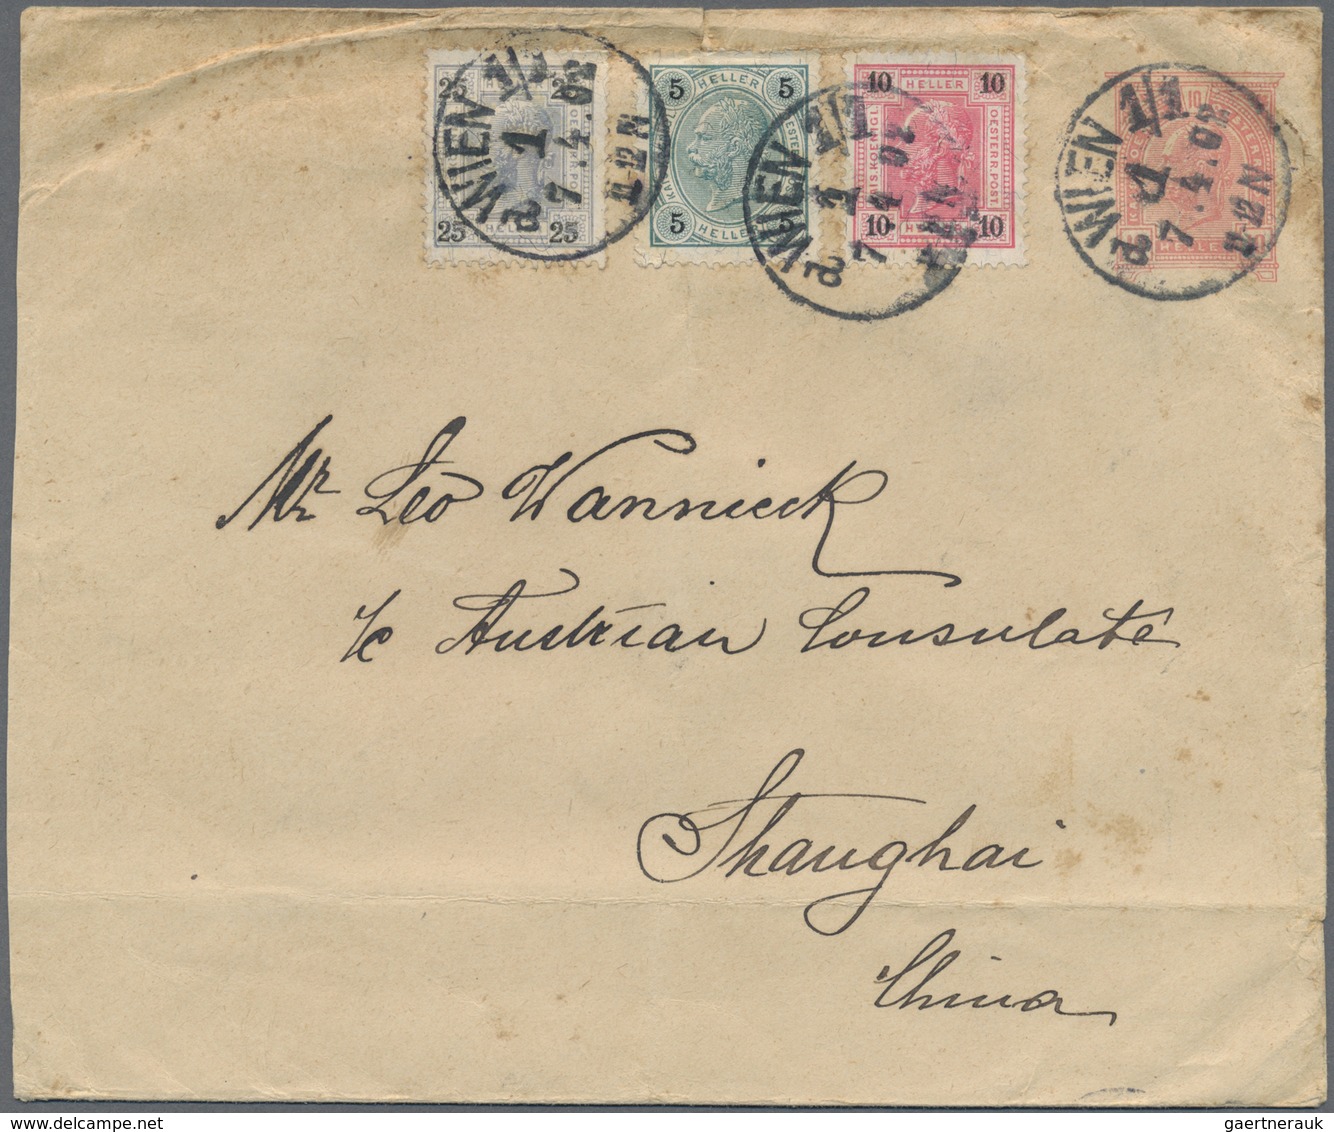 25 25
HELLER
25 25
WIEN 1/1
1
7.4.02
11-12 N
5 HELLER 5
5 HELLER 5
WIEN 1/1
1
7.4.02
10 HELLER 10
OESTERR.POST
10 10
WIEN 1/1
1
7.4.02
11-12 N
10
HELLER
Mr Leo Wannieck
c/o Austrian Consulate
Shanghai
China
gaertnerauk